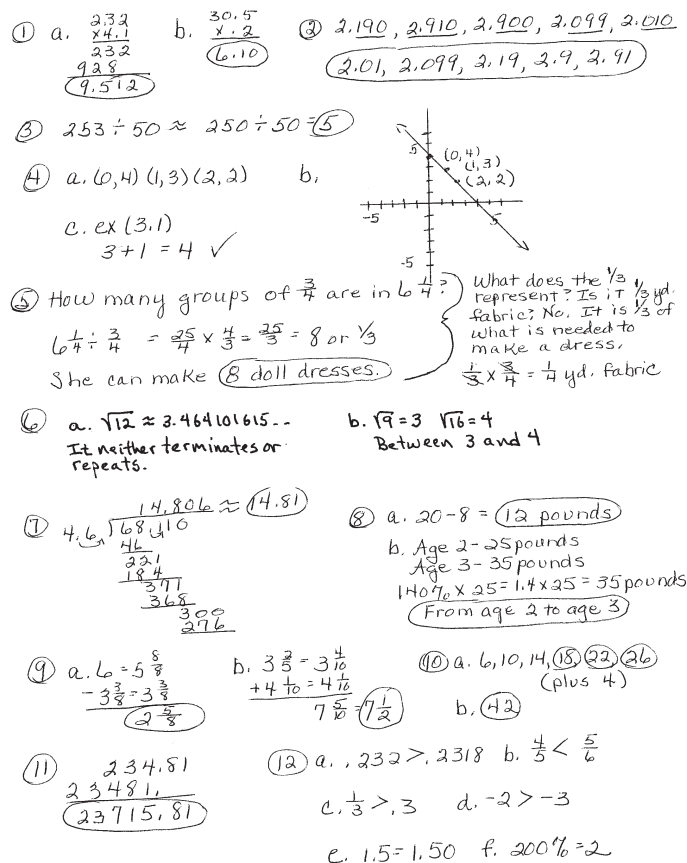 ① a. 2.32
x4.1
232
928
9.512
b. 30.5
x .2
6.10
② 2.190, 2.910, 2.900, 2.099, 2.010
2.01, 2.099, 2.19, 2.9, 2.91
③ 253 ÷ 50 ≈ 250 ÷ 50 = 5
④ a. (0,4) (1,3) (2,2)
b.
5
(0,4)
(1,3)
(2,2)
-5
5
-5
c. ex (3,1)
3+1 = 4 ✓
⑤ How many groups of 3/4 are in 6 1/4?
6 1/4 ÷ 3/4 = 25/4 x 4/3 = 25/3 = 8 or 1/3
She can make 8 doll dresses.
What does the 1/3
represent? Is it 1/3 yd.
fabric? No. It is 1/3 of
what is needed to
make a dress.
1/3 x 3/4 = 1/4 yd. fabric
⑥ a. √12 ≈ 3.464101615..
It neither terminates or
repeats.
b. √9 = 3 √16 = 4
Between 3 and 4
⑦ 14.806 ≈ 14.81
4.6)68.110
46
221
184
371
368
300
276
⑧ a. 20-8 = 12 pounds
b. Age 2 - 25 pounds
Age 3 - 35 pounds
140% x 25 = 1.4 x 25 = 35 pounds
From age 2 to age 3
⑨ a. 6 = 5 8/8
- 3 3/8 = 3 3/8
2 5/8
b. 3 2/5 = 3 4/10
+ 4 1/10 = 4 1/10
7 5/10 = 7 1/2
⑩ a. 6, 10, 14, 18, 22, 26
(plus 4)
b. 42
⑪ 234.81
23481.
23715.81
⑫ a. .232 > .2318 b. 4/5 < 5/6
c. 1/3 > .3 d. -2 > -3
e. 1.5 = 1.50 f. 200% = 2